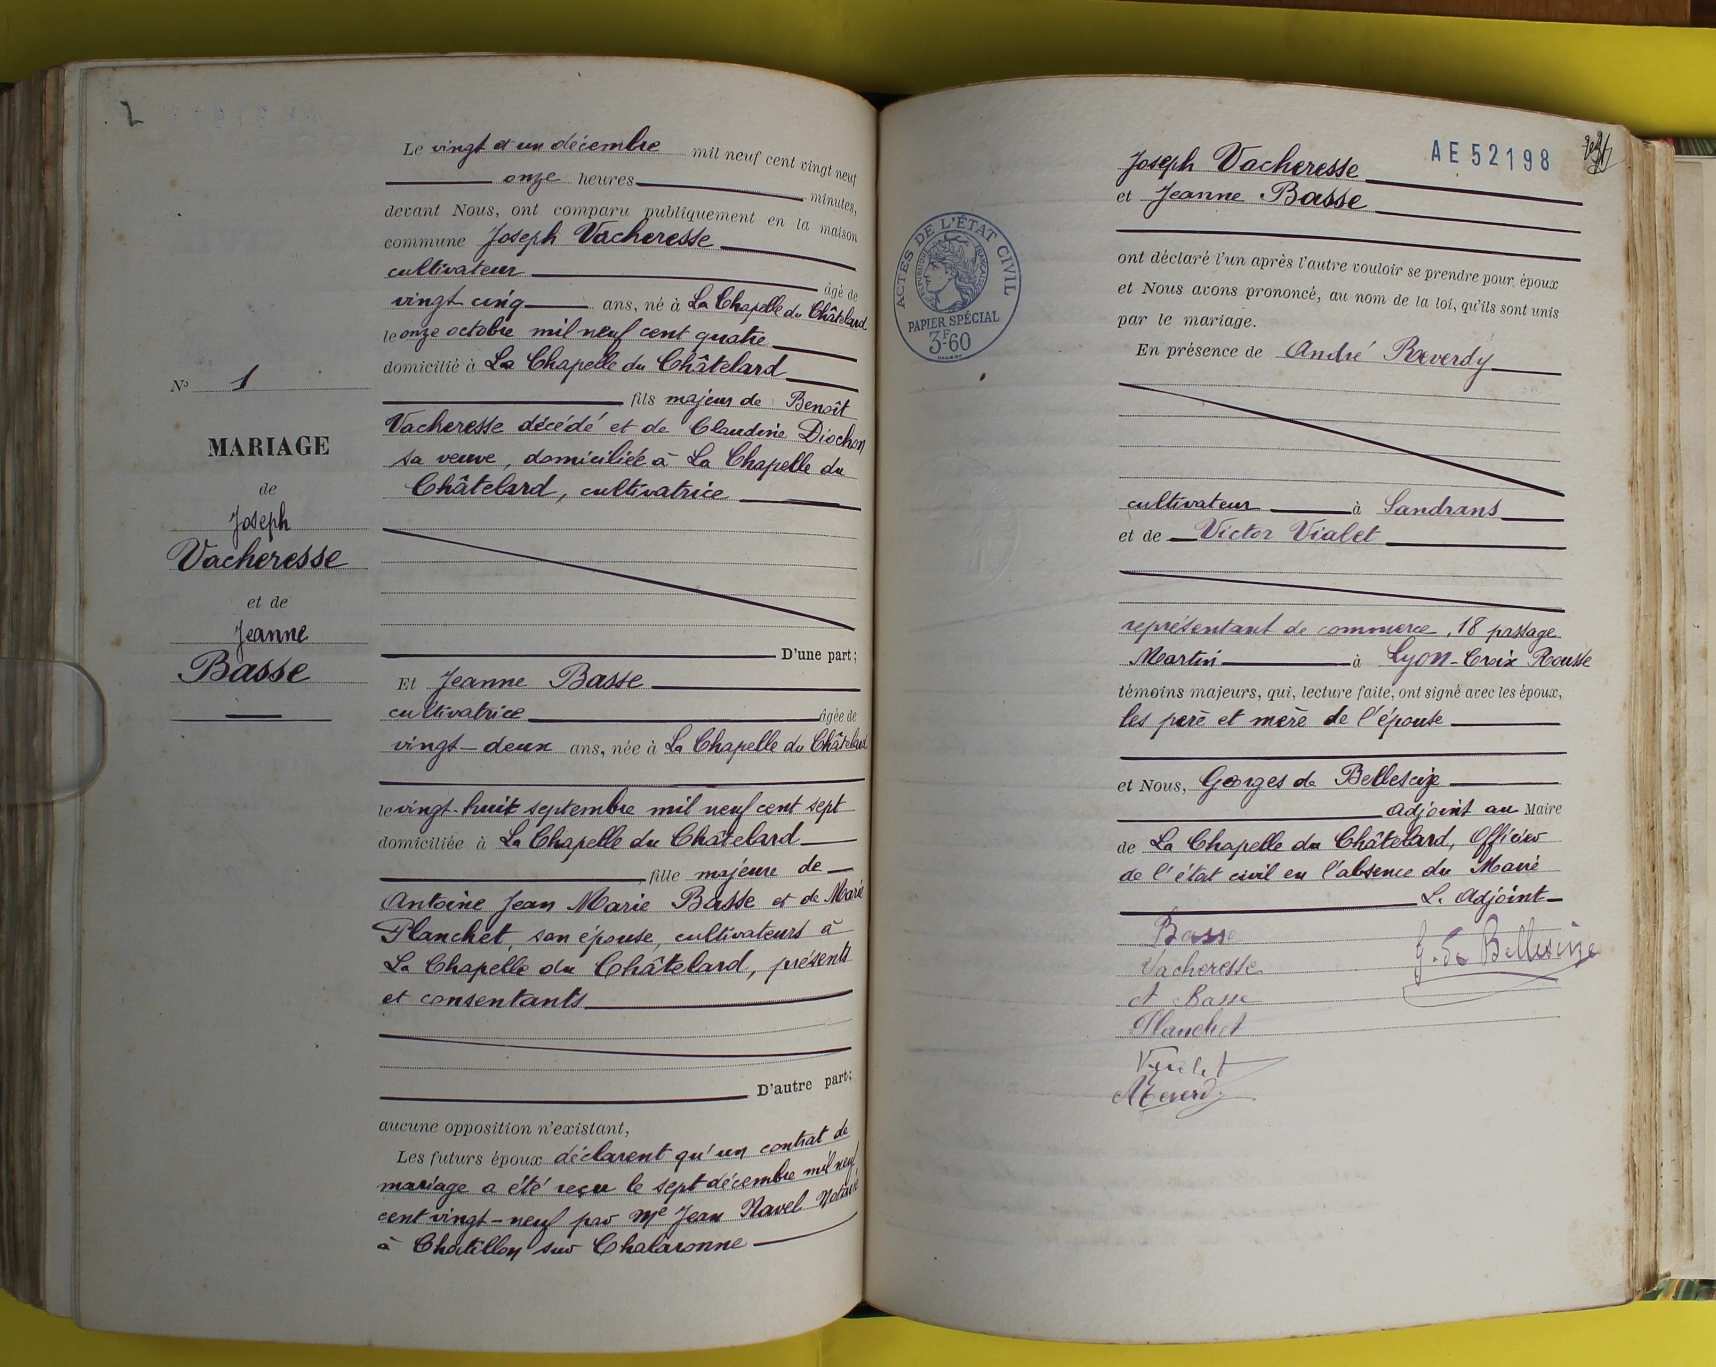 2
Nº 1
MARIAGE
de
Joseph
Vacheresse
et de
Jeanne
Basse
Le vingt et un décembre mil neuf cent vingt neuf
onze heures minutes,
devant Nous, ont comparu publiquement en la maison
commune Joseph Vacheresse
cultivateur âgé de
vingt cinq ans, né à La Chapelle du Châtelard
le onze octobre mil neuf cent quatre
domicilié à La Chapelle du Châtelard
fils majeur de Benoît
Vacheresse décédé et de Claudine Diochon
sa veuve, domiciliée à La Chapelle du
Châtelard, cultivatrice
D'une part;
Et Jeanne Basse
cultivatrice âgée de
vingt-deux ans, née à La Chapelle du Châtelard
le vingt-huit septembre mil neuf cent sept
domiciliée à La Chapelle du Châtelard
fille majeure de
Antoine Jean Marie Basse et de Marie
Planchet, son épouse, cultivateurs à
La Chapelle du Châtelard, présents
et consentants
D'autre part;
aucune opposition n'existant,
Les futurs époux déclarent qu'un contrat de
mariage a été reçu le sept décembre mil neuf
cent vingt-neuf par Me Jean Navel Notaire
à Châtillon sur Chalaronne
AE52198
ACTES DE L'ÉTAT CIVIL
PAPIER SPÉCIAL
3F60
Joseph Vacheresse
et Jeanne Basse
ont déclaré l'un après l'autre vouloir se prendre pour époux
et Nous avons prononcé, au nom de la loi, qu'ils sont unis
par le mariage.
En présence de André Reverdy
cultivateur à Sandrans
et de Victor Vialet
représentant de commerce, 18 passage
Martin à Lyon-Croix Rousse
témoins majeurs, qui, lecture faite, ont signé avec les époux,
les père et mère de l'épouse
et Nous, Georges de Bellescize
adjoint au Maire
de La Chapelle du Châtelard, Officier
de l'état civil en l'absence du Maire
L. Adjoint
Basse
G. de Bellescize
Vacheresse
A Basse
Planchet
Vialet
A Reverdy